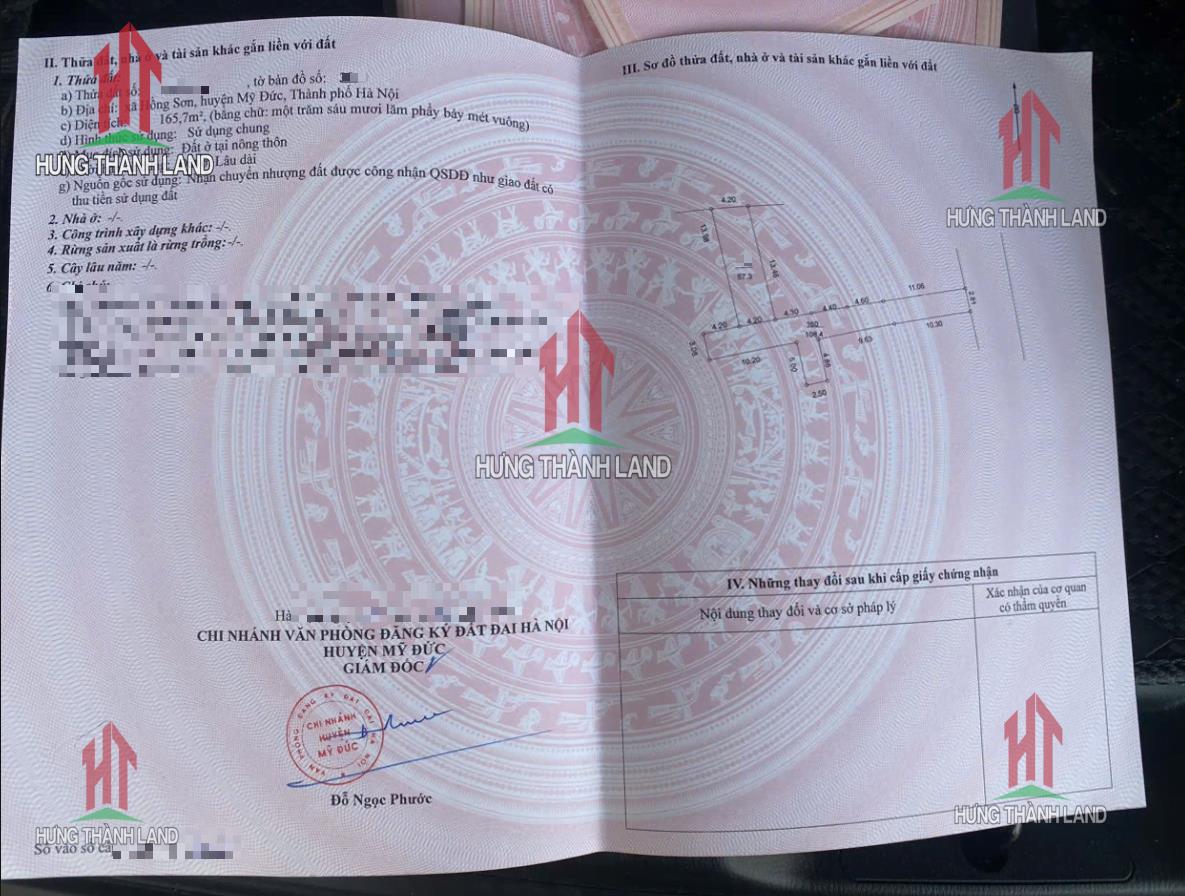 II. Thửa đất, nhà ở và tài sản khác gắn liền với đất
1. Thửa đất:
a) Thửa đất số: , tờ bản đồ số:
b) Địa chỉ: xã Hồng Sơn, huyện Mỹ Đức, Thành phố Hà Nội
c) Diện tích: 165,7m², (bằng chữ: một trăm sáu mươi lăm phẩy bảy mét vuông)
d) Hình thức sử dụng: Sử dụng chung
đích sử dụng: Đất ở tại nông thôn
Lâu dài
g) Nguồn gốc sử dụng: Nhận chuyển nhượng đất được công nhận QSDĐ như giao đất có
thu tiền sử dụng đất
2. Nhà ở: -/-.
3. Công trình xây dựng khác: -/-.
4. Rừng sản xuất là rừng trồng:-/-.
5. Cây lâu năm: -/-.
6.
Hà
CHI NHÁNH VĂN PHÒNG ĐĂNG KÝ ĐẤT ĐAI HÀ NỘI
HUYỆN MỸ ĐỨC
GIÁM ĐỐC
VĂN PHÒNG ĐĂNG KÝ ĐẤT ĐAI HÀ NỘI
CHI NHÁNH
HUYỆN
MỸ ĐỨC
Đỗ Ngọc Phước
Số vào sổ cấ
III. Sơ đồ thửa đất, nhà ở và tài sản khác gắn liền với đất
B
4.20
13.98
13.46
57.3
4.20
4.20
4.30
4.40
4.60
11.06
2.81
3.06
10.20
360
108.4
9.63
10.30
5.00
4.86
2.50
IV. Những thay đổi sau khi cấp giấy chứng nhận
Nội dung thay đổi và cơ sở pháp lý
Xác nhận của cơ quan
có thẩm quyền
HƯNG THÀNH LAND
HƯNG THÀNH LAND
HƯNG THÀNH LAND
HƯNG THÀNH LAND
HƯNG THÀNH LAND